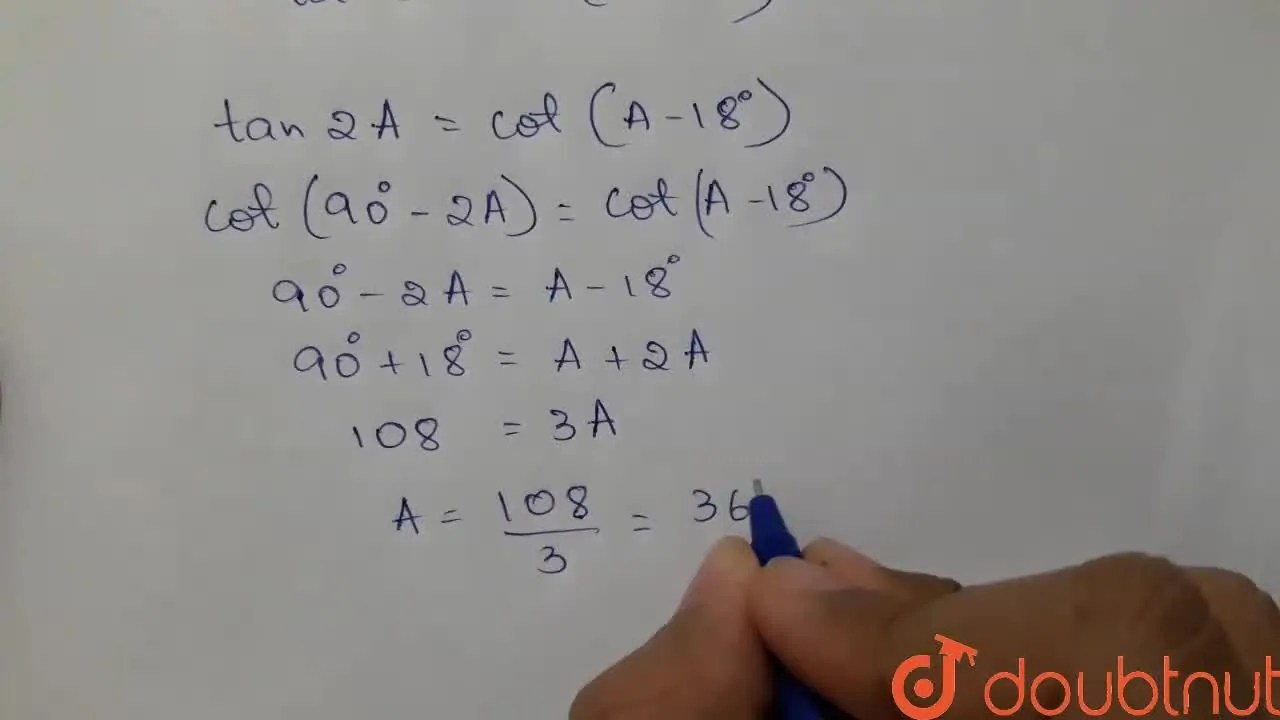 tan 2A = cot (A - 18°)
cot (90° - 2A) = cot (A - 18°)
90° - 2A = A - 18°
90° + 18° = A + 2A
108 = 3A
A = 108/3 = 36
doubtnut